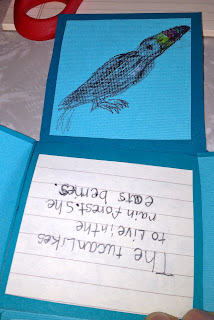 The tucan Likes
to Live in the
rain forest. She
eats berries.